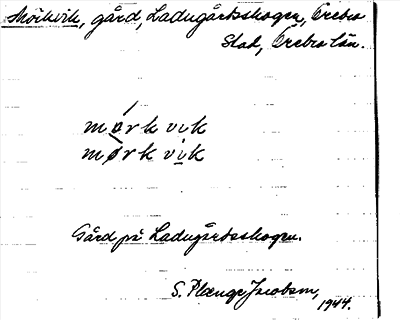 Mörkvik, gård, Ladugårdsskogen, Örebro
Stad, Örebro län.
mørk vik
mørk vik
Gård på Ladugårdsskogen.
S. Plænge Jacobson,
1944.